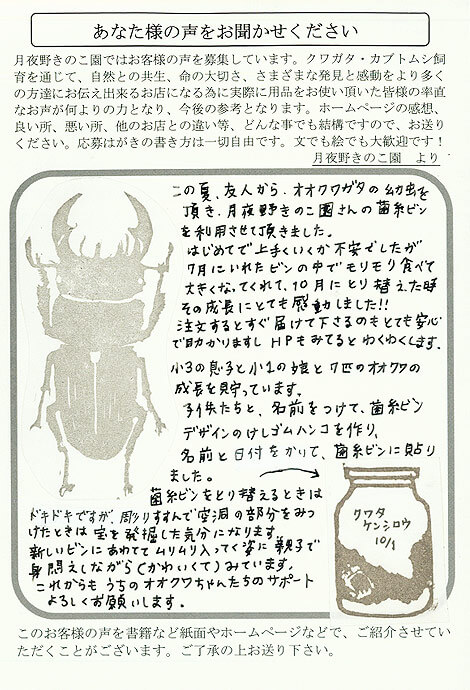 あなた様の声をお聞かせください
月夜野きのこ園ではお客様の声を募集しています。クワガタ・カブトムシ飼
育を通じて、自然との共生、命の大切さ、さまざまな発見と感動をより多く
の方達にお伝え出来るお店になる為に実際に用品をお使い頂いた皆様の率直
なお声が何よりの力となり、今後の参考となります。ホームページの感想、
良い所、悪い所、他のお店との違い等、どんな事でも結構ですので、お送り
ください。応募はがきの書き方は一切自由です。文でも絵でも大歓迎です！
月夜野きのこ園　より
この夏、友人から、オオクワガタの幼虫を
頂き、月夜野きのこ園さんの菌糸ビン
を利用させて頂きました。
はじめてで上手くいくか不安でしたが
7月にいれたビンの中でモリモリ食べて
大きくなってくれて、10月にとり替えた時
その成長にとても感動しました!!
注文するとすぐ届けて下さるのもとても安心
で助かりますし HPもみてるとわくわくします。
小3の息子と小1の娘と7匹のオオクワの
成長を見守っています。
子供たちと、名前をつけて、菌糸ビン
デザインのけしゴムハンコを作り、
名前と日付をかいて、菌糸ビンに貼り
ました。
菌糸ビンをとり替えるときは
ドキドキですが、周りりすすんで空洞の部分をみつ
けたときは宝を発掘した気分になります。
新しいビンにあわててムリムリ入ってく姿に親子で
身悶えしながら(かわいくて)みています。
これからもうちのオオクワちゃんたちのサポート
よろしくお願いします。
クワタ
ケンシロウ
10/1
このお客様の声を書籍など紙面やホームページなどで、ご紹介させてい
ただくことがございます。ご了承の上お送り下さい。